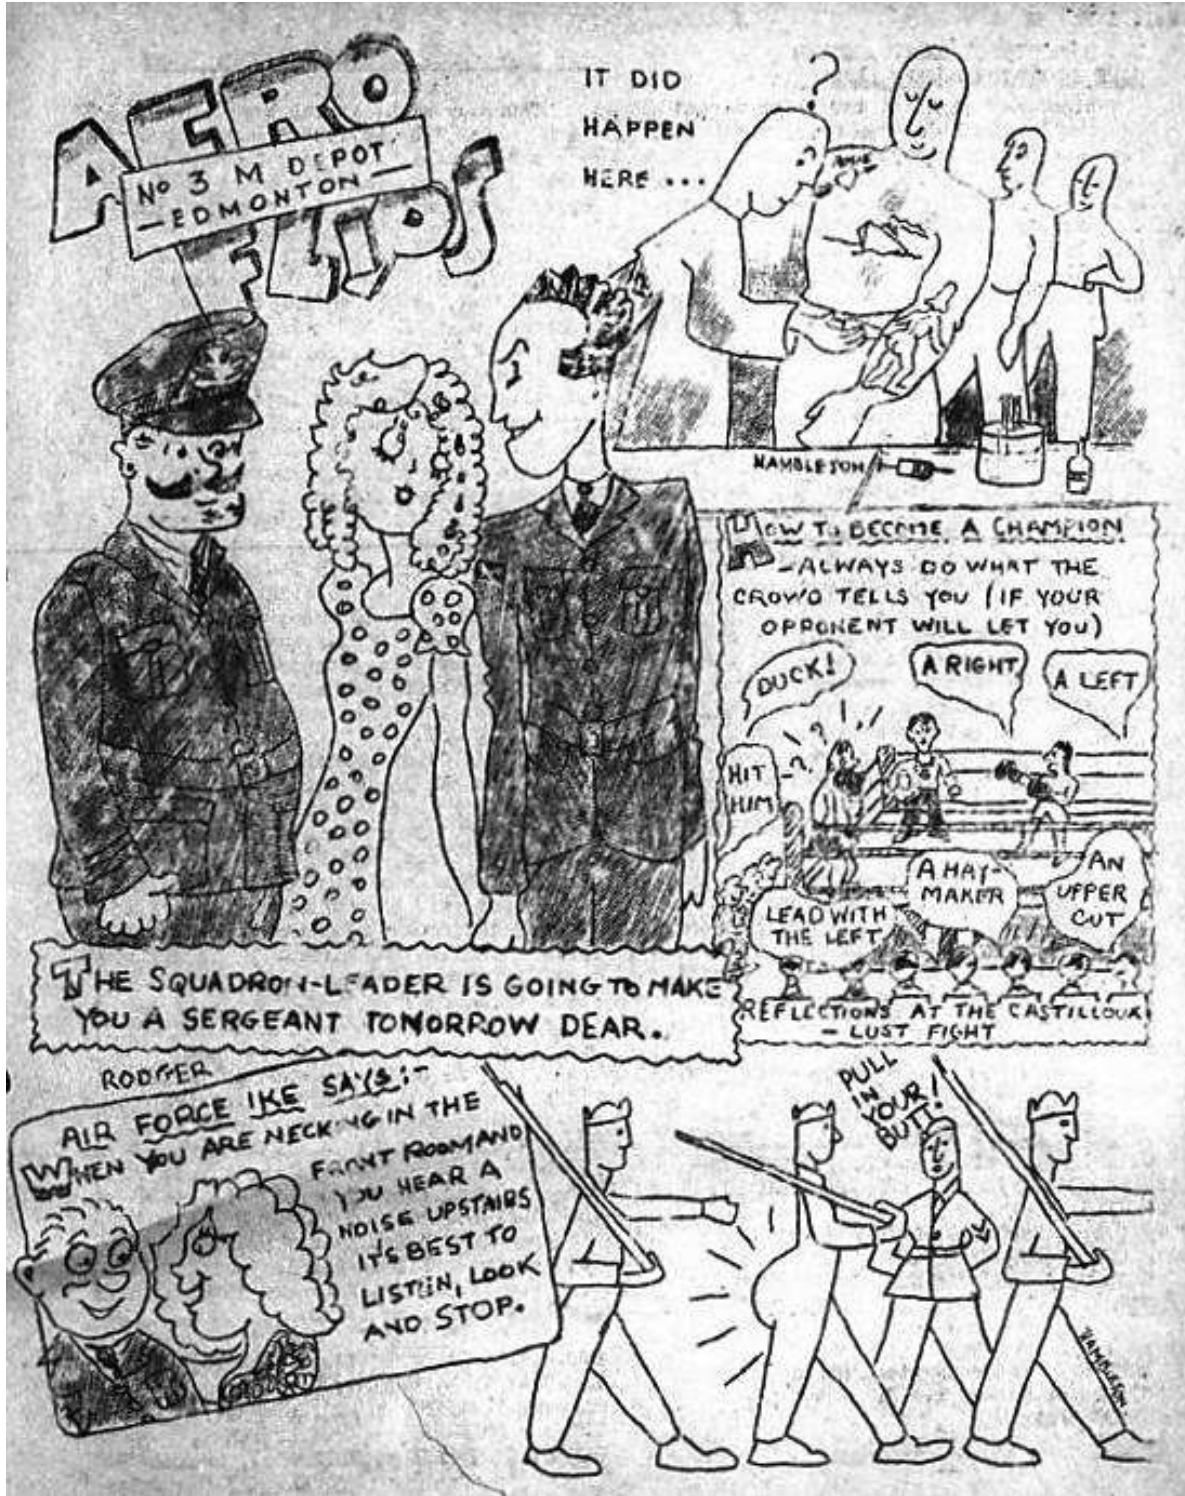 AERO
No 3 M DEPOT
— EDMONTON —
FLIPS
IT DID
HAPPEN
HERE ...
?
HAMBLESON
HOW TO BECOME A CHAMPION
— ALWAYS DO WHAT THE
CROWD TELLS YOU (IF YOUR
OPPONENT WILL LET YOU)
DUCK!
A RIGHT
A LEFT
HIT
HIM
A HAY-
MAKER
AN
UPPER
CUT
LEAD WITH
THE LEFT
REFLECTIONS AT THE CASTILLOUX
— LUST FIGHT
THE SQUADRON-LEADER IS GOING TO MAKE
YOU A SERGEANT TOMORROW DEAR.
RODGER
AIR FORCE IKE SAYS:-
WHEN YOU ARE NECKING IN THE
FRONT ROOM AND
YOU HEAR A
NOISE UPSTAIRS
IT'S BEST TO
LISTEN, LOOK
AND STOP.
PULL
IN
YOUR
BUTT!
HAMBLESON